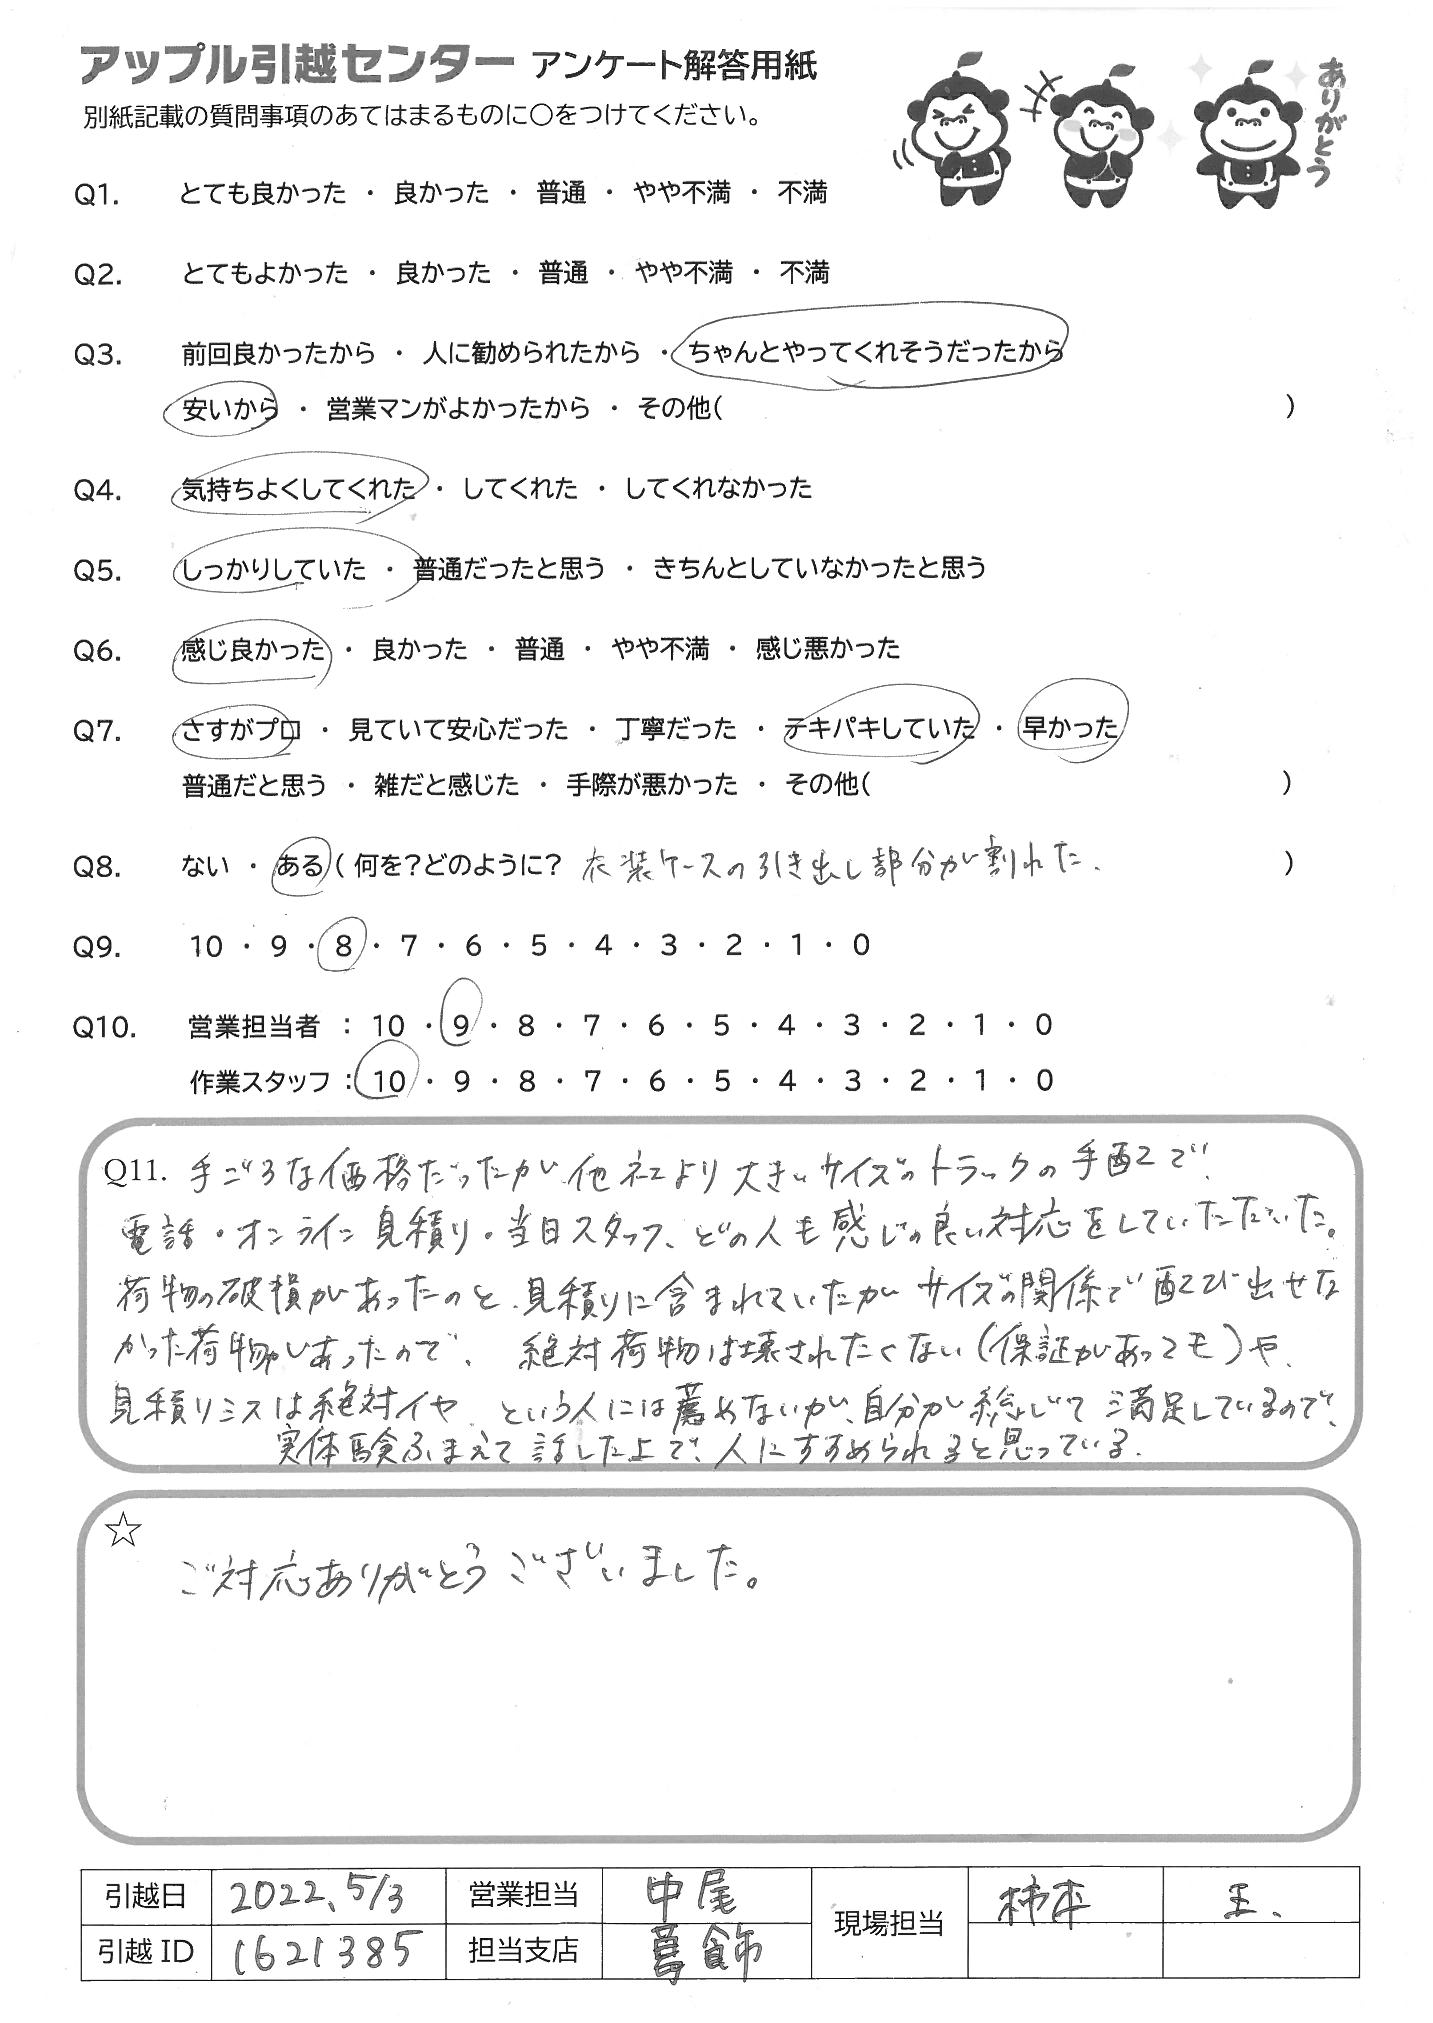 アップル引越センター アンケート解答用紙
別紙記載の質問事項のあてはまるものに○をつけてください。
ありがとう
Q1. とても良かった ・ 良かった ・ 普通 ・ やや不満 ・ 不満
Q2. とてもよかった ・ 良かった ・ 普通 ・ やや不満 ・ 不満
Q3. 前回良かったから ・ 人に勧められたから ・ ちゃんとやってくれそうだったから
安いから ・ 営業マンがよかったから ・ その他( )
Q4. 気持ちよくしてくれた ・ してくれた ・ してくれなかった
Q5. しっかりしていた ・ 普通だったと思う ・ きちんとしていなかったと思う
Q6. 感じ良かった ・ 良かった ・ 普通 ・ やや不満 ・ 感じ悪かった
Q7. さすがプロ ・ 見ていて安心だった ・ 丁寧だった ・ テキパキしていた ・ 早かった
普通だと思う ・ 雑だと感じた ・ 手際が悪かった ・ その他( )
Q8. ない ・ ある ( 何を？どのように？ 衣装ケースの引き出し部分が割れた. )
Q9. 10 ・ 9 ・ 8 ・ 7 ・ 6 ・ 5 ・ 4 ・ 3 ・ 2 ・ 1 ・ 0
Q10. 営業担当者 : 10 ・ 9 ・ 8 ・ 7 ・ 6 ・ 5 ・ 4 ・ 3 ・ 2 ・ 1 ・ 0
作業スタッフ : 10 ・ 9 ・ 8 ・ 7 ・ 6 ・ 5 ・ 4 ・ 3 ・ 2 ・ 1 ・ 0
Q11. 手ごろな価格だったが他社より大きいサイズのトラックの手配で、
電話・オンライン見積り・当日スタッフ、どの人も感じの良い対応をしていただいた。
荷物の破損があったのと、見積りに含まれていたがサイズの関係で配び出せな
かった荷物があったので、 絶対荷物は壊されたくない(保証があっても)や、
見積りミスは絶対イヤ、という人には薦めないが、自分が総じて満足しているので、
実体験ふまえて話した上で、人にすすめられると思っている.
☆
ご対応ありがとうございました。
引越日 2022、5/3 営業担当 中尾 現場担当 柿本 王、
引越ID 1621385 担当支店 葛飾